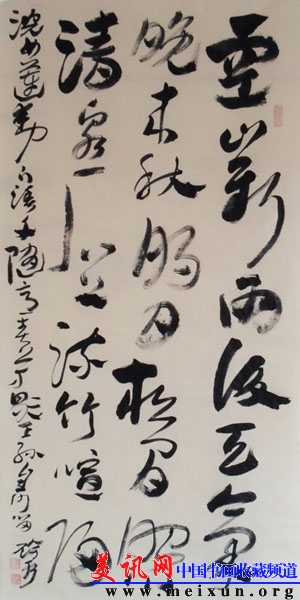 空山新雨後天氣
晚來秋明月松間照
清泉石上流竹喧歸
浣女蓮動下漁舟隨意春芳歇王孫自可留
美讯网 中国书画收藏频道
www.meixun.org